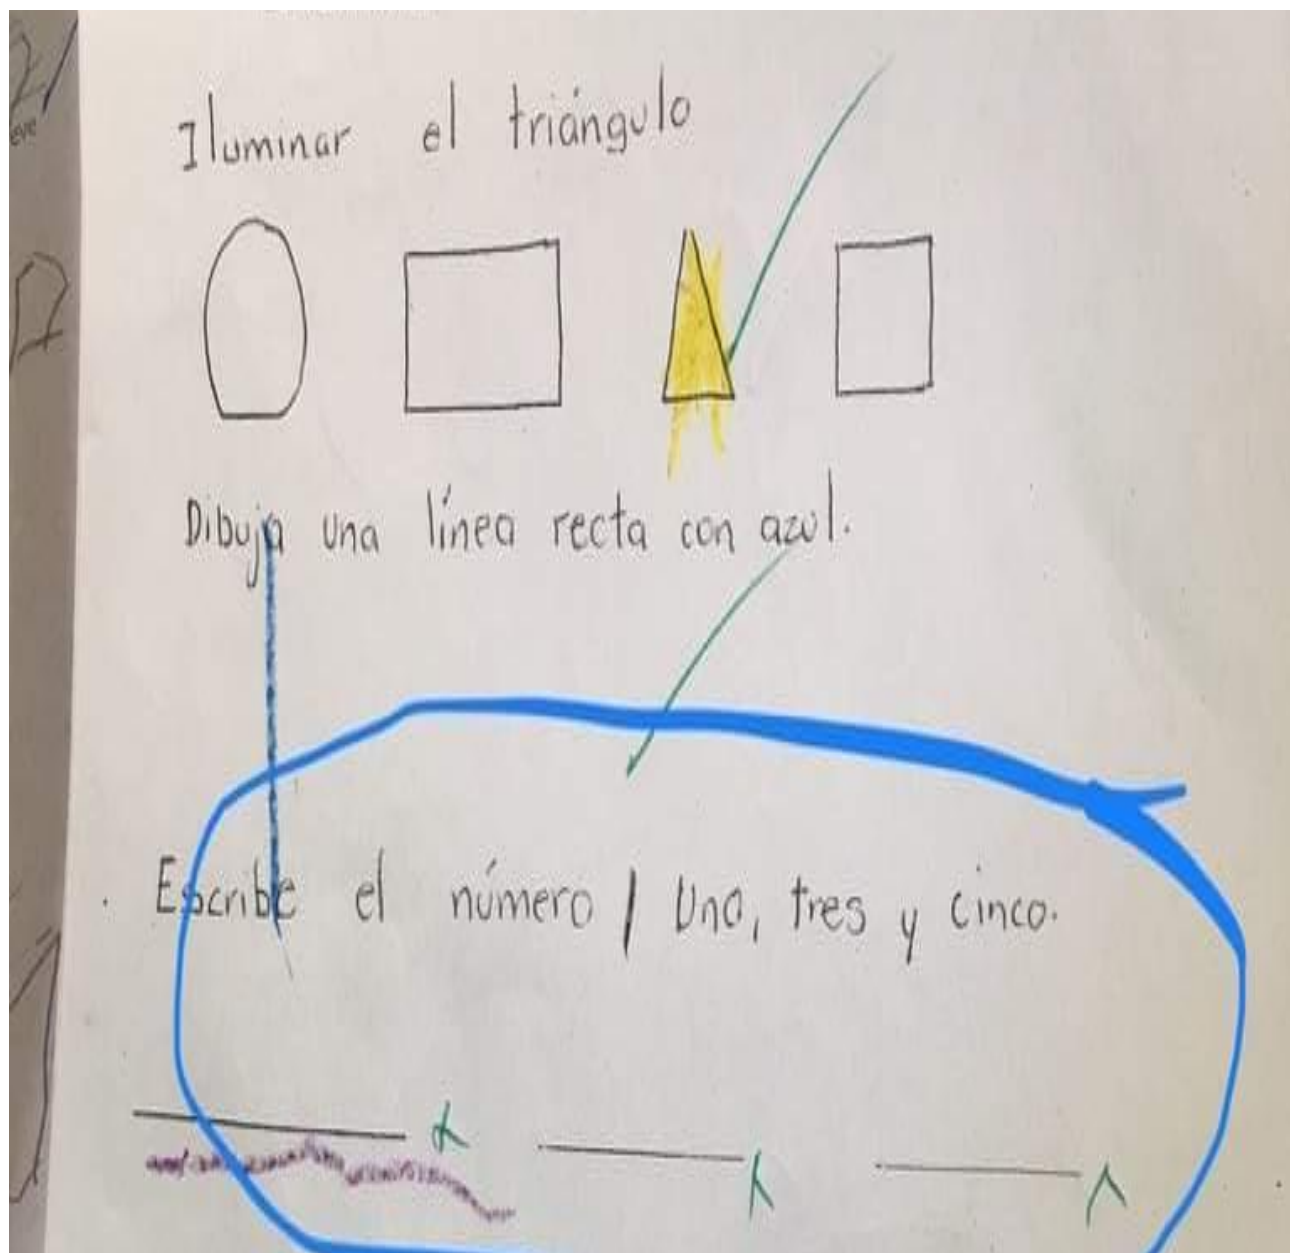 Iluminar el triángulo
Dibuja una línea recta con azul.
Escribe el número / Uno, tres y cinco.